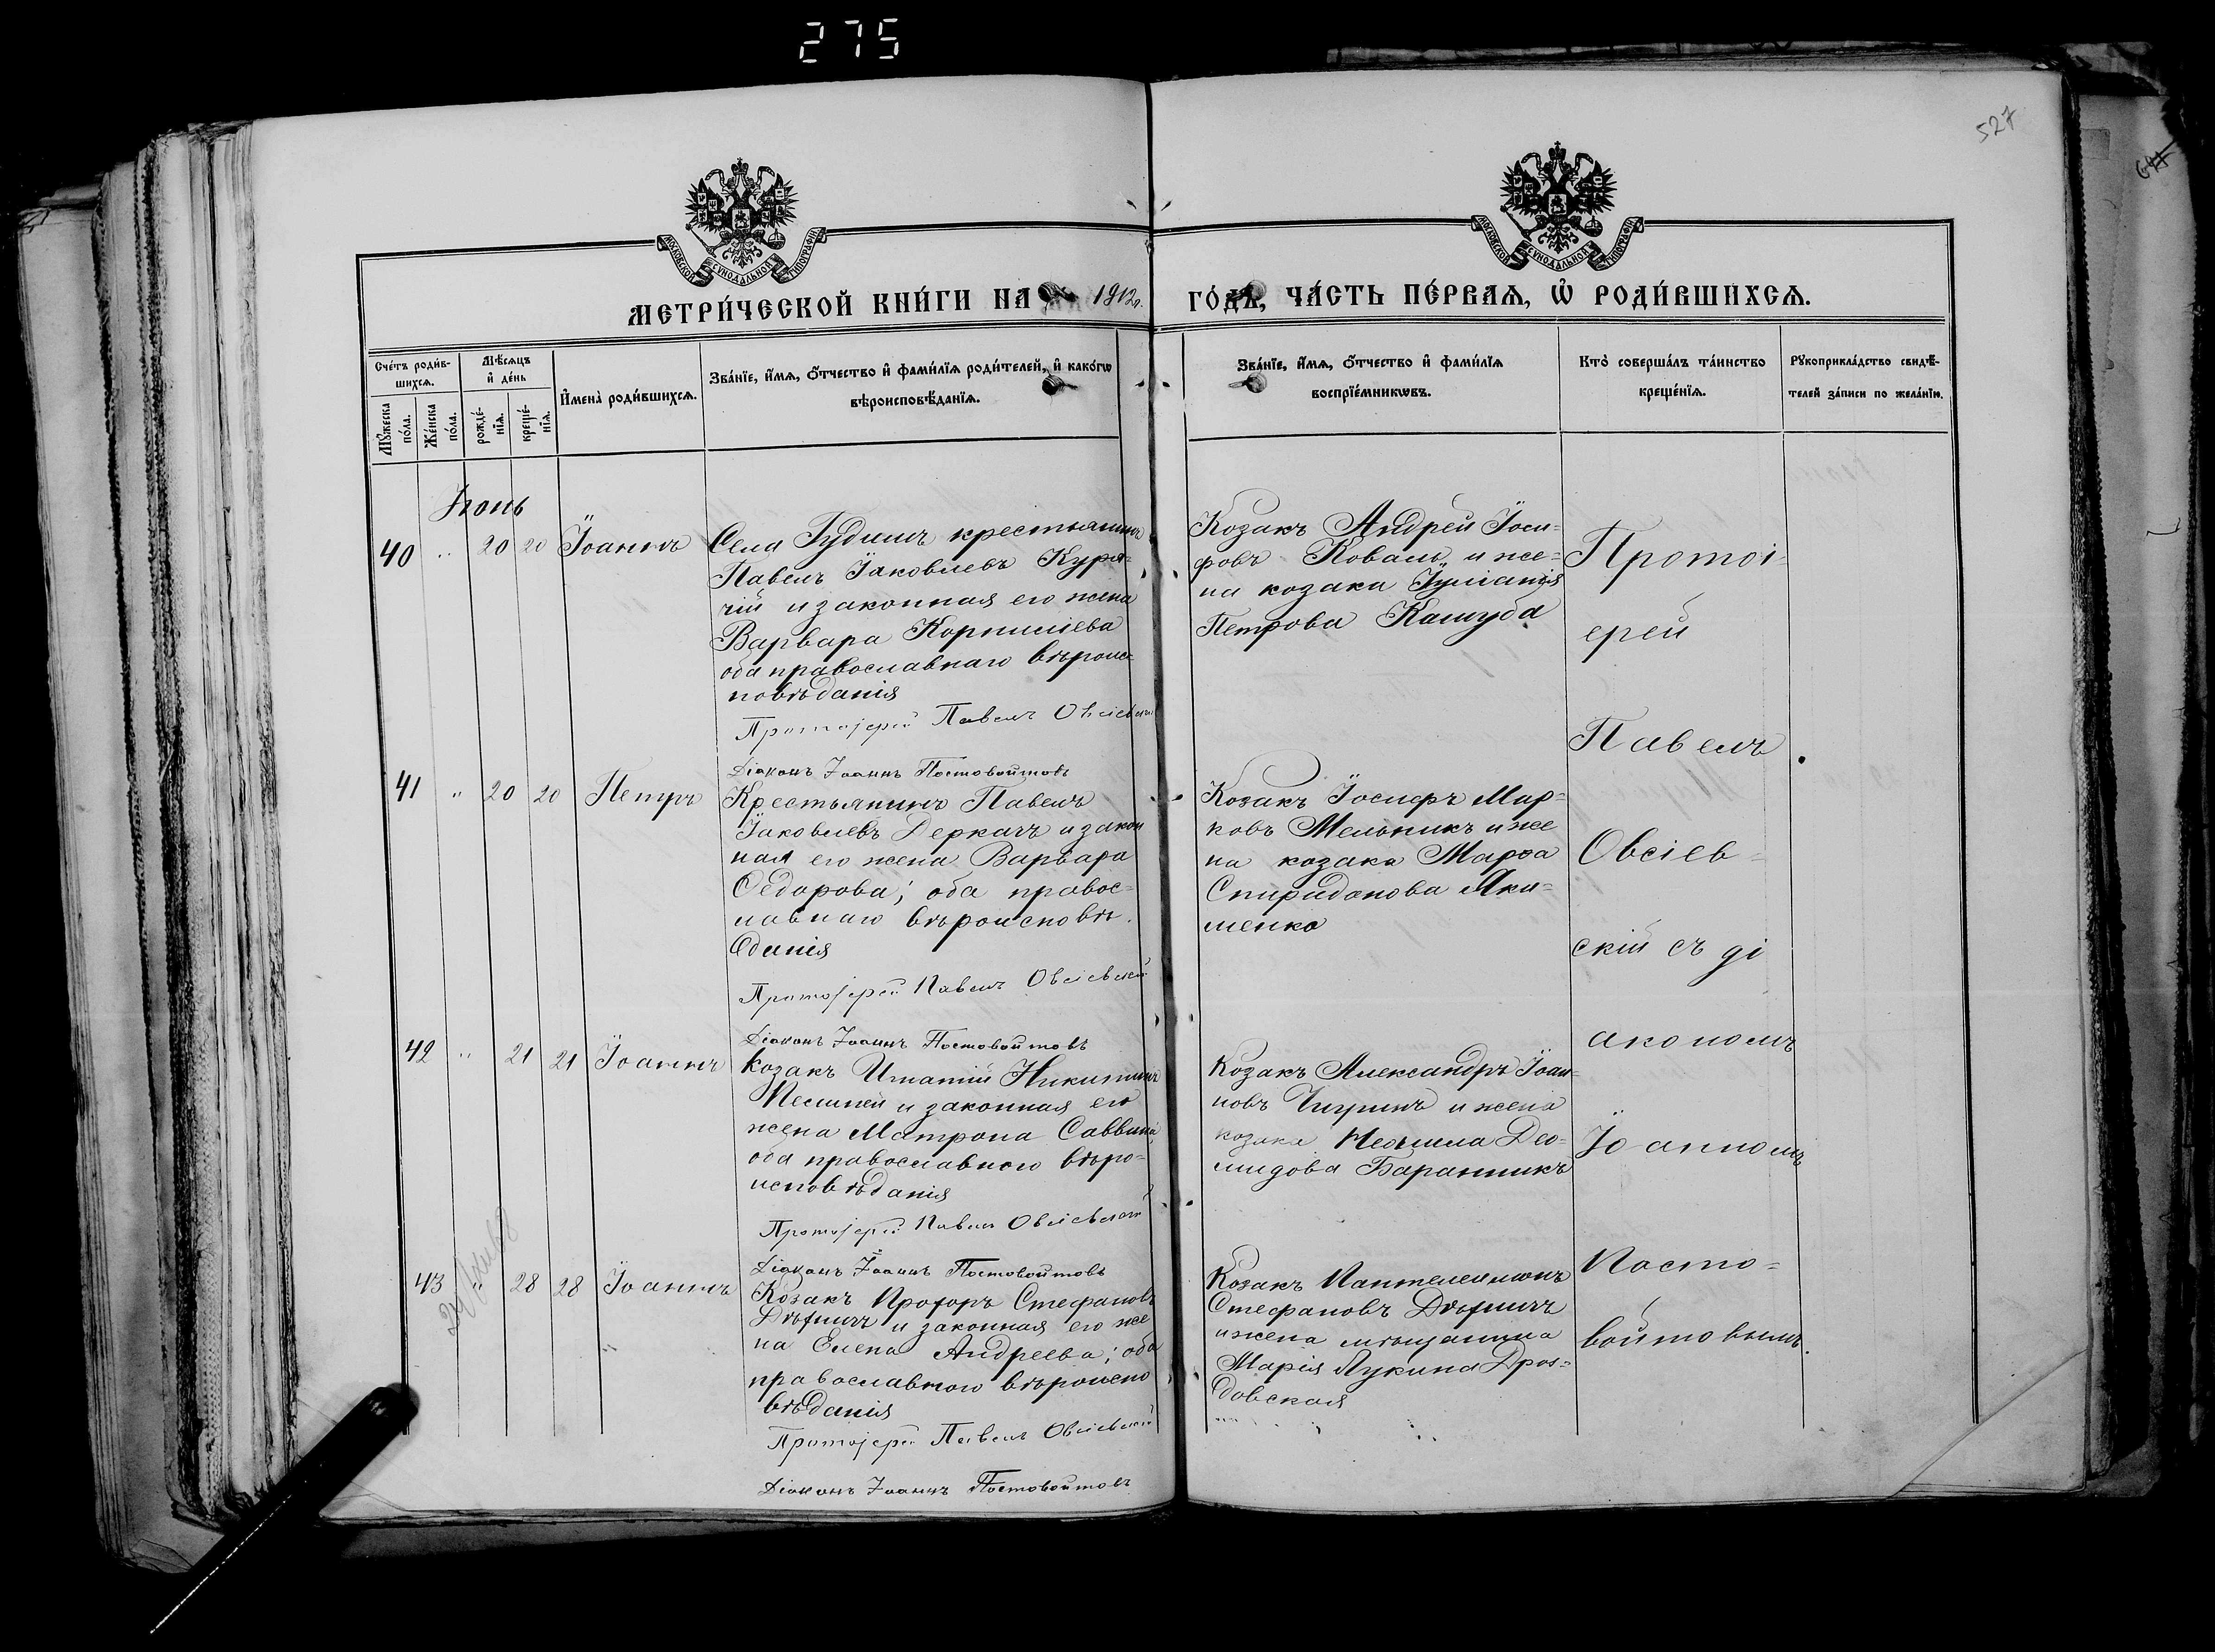 275
527
МОСКОВСКОЙ СѴНОДАЛЬНОЙ ТИПОГРАФІИ
МОСКОВСКОЙ СѴНОДАЛЬНОЙ ТИПОГРАФІИ
МЕТРИ́ЧЕСКОЙ КНИ́ГИ НА 1912г.
ГО́ДЪ, ЧА́СТЬ ПЕ́РВАѦ, Ѡ҆ РОДИ́ВШИХСѦ.
Сче́тъ роди́в-
шихсѧ.
Мꙋ́жеска по́ла.
Же́нска по́ла.
Мѣ́сѧцъ и҆ де́нь
рожде́-
нїѧ.
креще́-
нїѧ.
И҆мена̀ роди́вшихсѧ.
Зва́нїе, и҆́мѧ, ѻ҆́тчество и҆ фами́лїѧ роди́телей, и҆ како́гѡ
вѣроисповѣ́данїѧ.
Зва́нїе, и҆́мѧ, ѻ҆́тчество и҆ фами́лїѧ
воспрїе́мникѡвъ.
Кто̀ соверша́лъ та́инство
креще́нїѧ.
Рꙋкоприкла́дство свидѣ́-
телей за́писи по жела́нїю.
Іюнь
40 " 20 20 Іоаннъ
Села Гудимъ крестьянинъ
Павелъ Іаковлевъ Куря-
чій и законная его жена
Варвара Корниліева
оба православнаго вѣроис-
повѣданія
Протоіерей Павелъ Овсіевскій
Діаконъ Іоаннъ Постовойтовъ
Козакъ Андрей Іоси-
фовъ Коваль, и же-
на козака Іуліанія
Петрова Кашуба
41 " 20 20 Петръ
Крестьянинъ Павелъ
Іаковлевъ Деркачъ и закон
ная его жена Варвара
Ѳедорова; оба правос-
лавнаго вѣроисповѣ-
данія
Протоіерей Павелъ Овсіевскій
Діаконъ Іоаннъ Постовойтовъ
Козакъ Іосифъ Мар-
ковъ Мельникъ и же
на козака Марѳа
Спиридонова Яки-
менко
42 " 21 21 Іоаннъ
Козакъ Игнатій Никитинъ
и законная его
жена Матрона Саввина
оба православнаго вѣро-
исповѣданія
Протоіерей Павелъ Овсіевскій
Діаконъ Іоаннъ Постовойтовъ
Козакъ Александръ Іоан-
новъ Чигринъ и жена
козака Дио-
мидова Баранникъ
43 " 28 28 Іоаннъ
Козакъ Прохоръ Стефановъ
и законная его же
на Елена Андреева; оба
православнаго вѣроиспо
вѣданія
Протоіерей Павелъ Овсіевскій
Діаконъ Іоаннъ Постовойтовъ
Козакъ Пантелеимонъ
Стефановъ
и жена мѣщанина
Марія Лукина Дроз-
довская
Протоі-
ерей
Павелъ
Овсіев-
скій съ ді
акономъ
Іоанномъ
Посто-
войтовымъ.